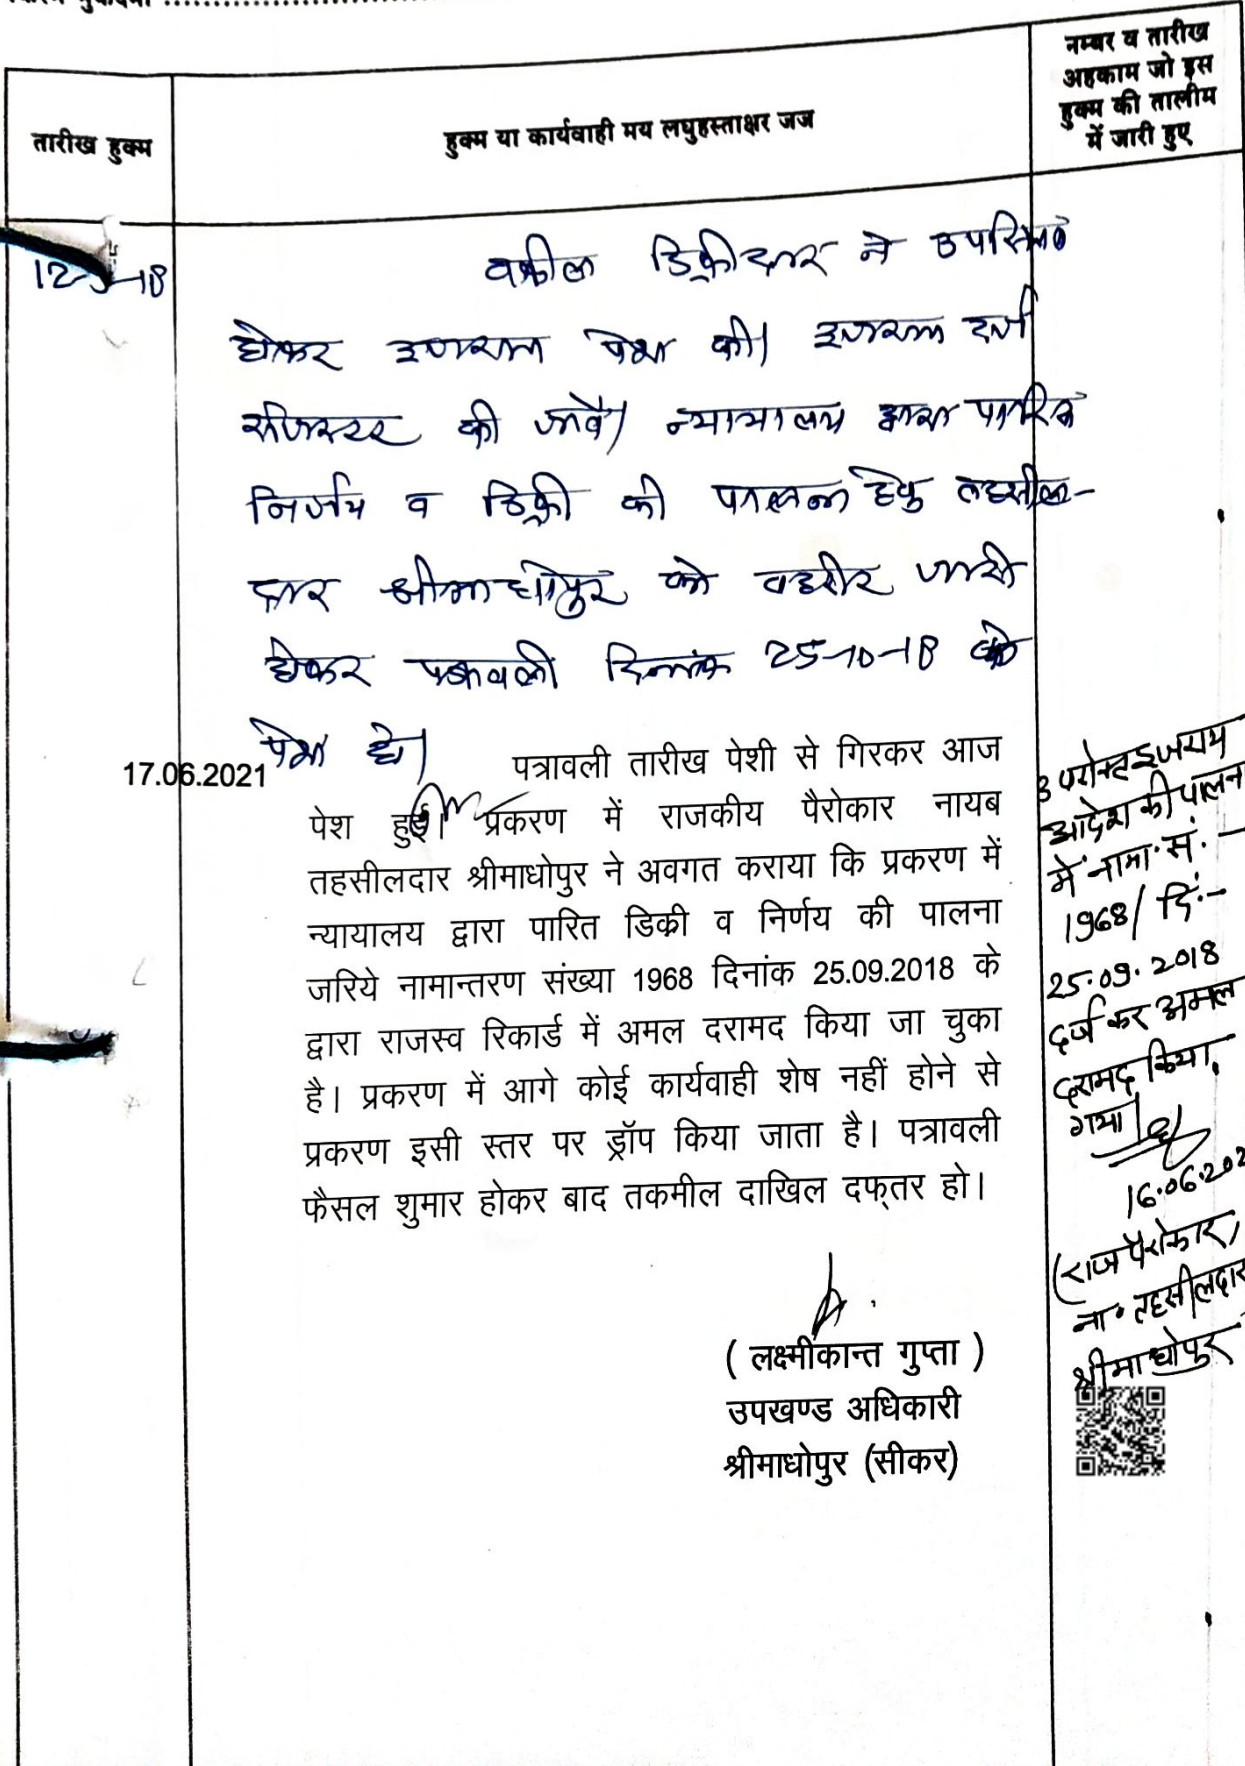 तारीख हुक्म
हुक्म या कार्यवाही मय लघुहस्ताक्षर जज
नम्बर व तारीख
अहकाम जो इस
हुक्म की तालीम
में जारी हुए
वकील डिक्रीदार ने उपस्थित
होकर इजराय पेश की। इजराय दर्ज
रजिस्टर की जावे। न्यायालय द्वारा पारित
निर्णय व डिक्री की पालना हेतु तहसील-
दार श्रीमाधोपुर को तहरीर जारी
होकर पत्रावली दिनांक 25-10-18 को
पेश हो।
17.06.2021
पत्रावली तारीख पेशी से गिरकर आज
पेश हुई। प्रकरण में राजकीय पैरोकार नायब
तहसीलदार श्रीमाधोपुर ने अवगत कराया कि प्रकरण में
न्यायालय द्वारा पारित डिक्री व निर्णय की पालना
जरिये नामान्तरण संख्या 1968 दिनांक 25.09.2018 के
द्वारा राजस्व रिकार्ड में अमल दरामद किया जा चुका
है। प्रकरण में आगे कोई कार्यवाही शेष नहीं होने से
प्रकरण इसी स्तर पर ड्रॉप किया जाता है। पत्रावली
फैसल शुमार होकर बाद तकमील दाखिल दफ्तर हो।
( लक्ष्मीकान्त गुप्ता )
उपखण्ड अधिकारी
श्रीमाधोपुर (सीकर)
उपरोक्त इजराय
आदेश की पालना
में नामा. सं. –
1968/ दि:-
25.09.2018
दर्ज कर अमल
दरामद किया
गया।
16.06.202
(राज पैरोकार)
ना० तहसीलदार
श्रीमाधोपुर